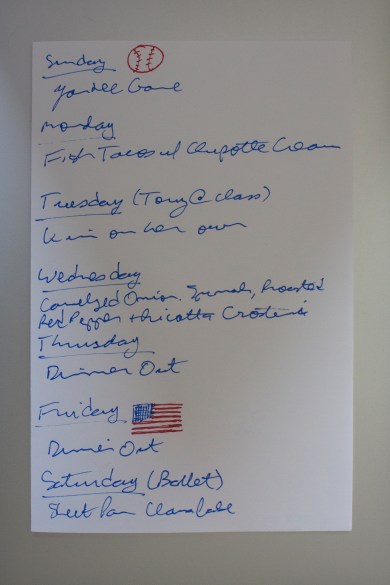 Sunday
Yankee Game
Monday
Fish Tacos w/ Chipotle Cream
Tuesday (Tony @ class)
Kim on her own
Wednesday
Camelized Onion, Spinach, Roasted
Red Pepper + Ricotta Crostini
Thursday
Dinner Out
Friday
Dinner Out
Saturday (Ballet)
Sheet Pan Clambake